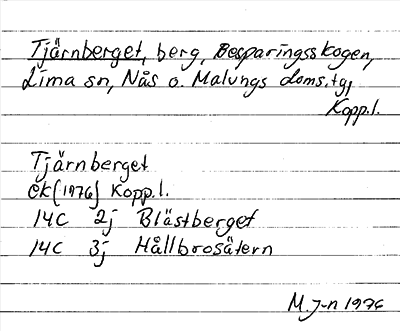 Tjärnberget, berg, Besparingsskogen,
Lima sn, Nås o. Malungs doms.tg,
Kopp.l.
Tjärnberget
ek (1976) Kopp.l.
14C 2j Blästberget
14C 3j Hållbrosätern
M. J-n 1976